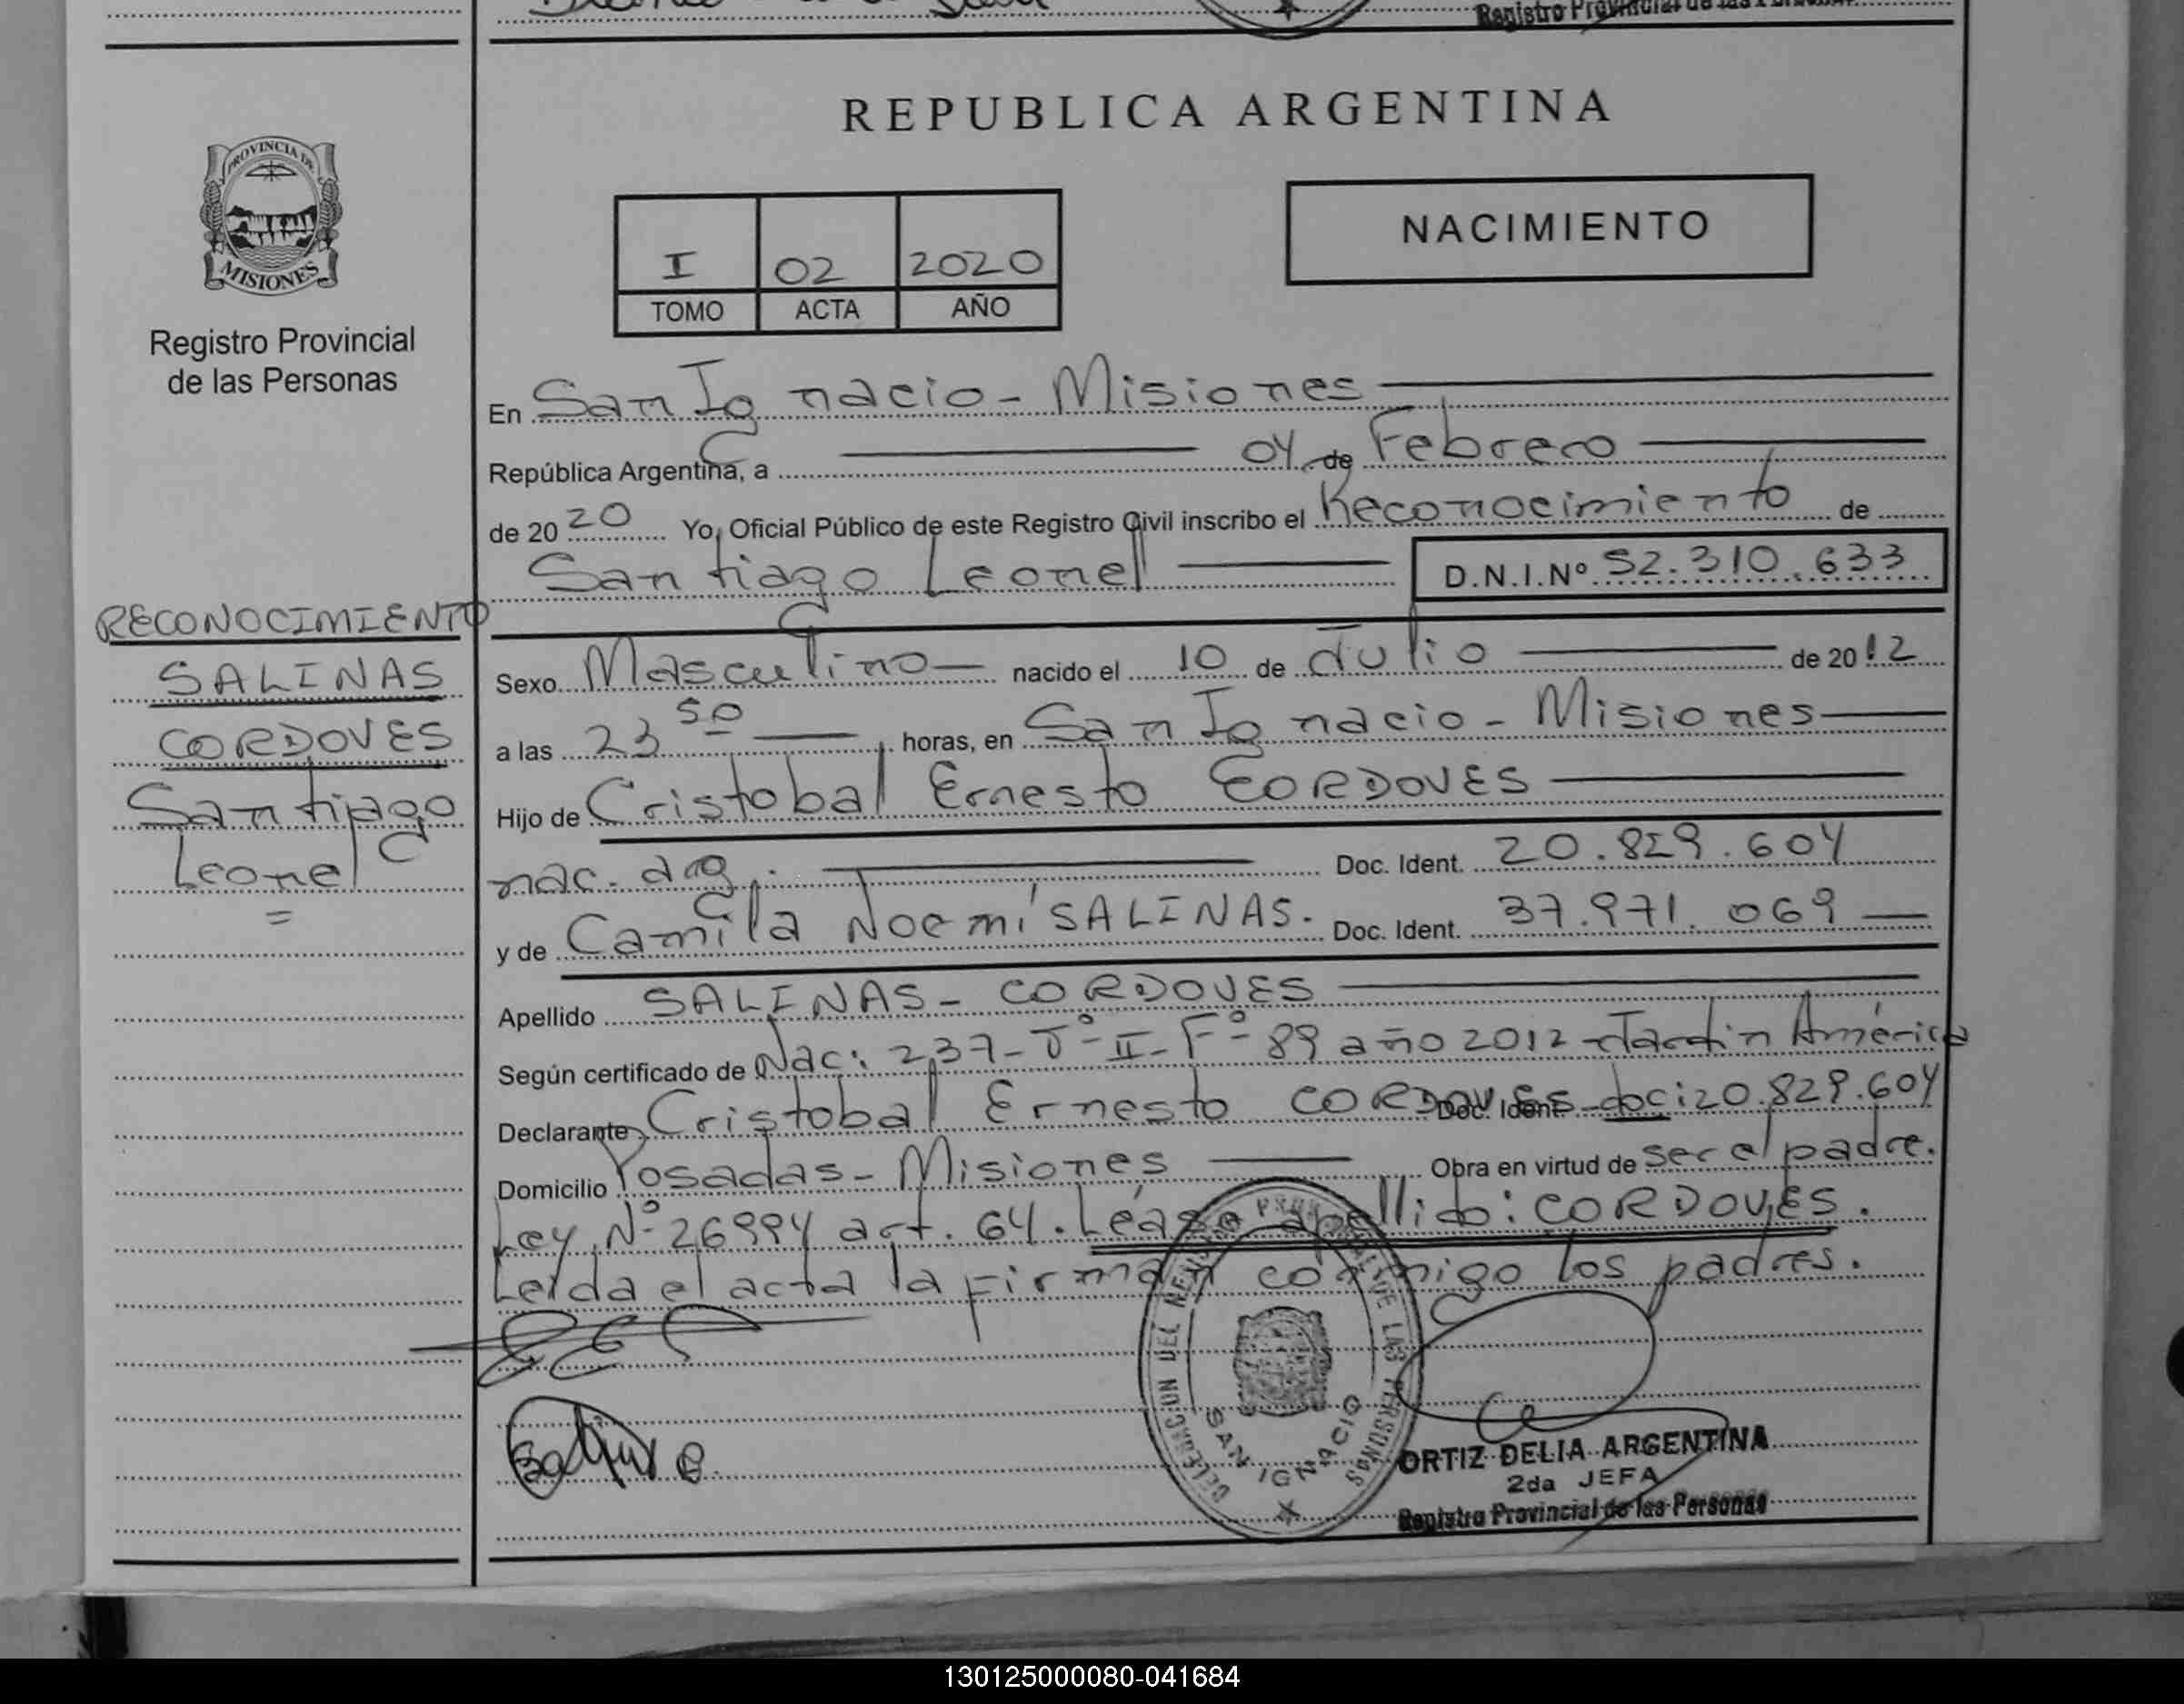 Registro Provincial de las Personas
REPUBLICA ARGENTINA
PROVINCIA DE
MISIONES
Registro Provincial
de las Personas
NACIMIENTO
I 02 2020
TOMO ACTA AÑO
En San Ignacio - Misiones
República Argentina, a 04 de Febrero
de 20 20 Yo, Oficial Público de este Registro Civil inscribo el Reconocimiento de
Santiago Leonel D.N.I.Nº 52.310.633
RECONOCIMIENTO
SALINAS
CORDOVES
Santiago
Leonel
=
Sexo Masculino nacido el 10 de Julio de 20 12
a las 23 50 horas, en San Ignacio - Misiones
Hijo de Cristobal Ernesto CORDOVES
nac. arg. Doc. Ident. 20.829.604
y de Camila Noemí SALINAS. Doc. Ident. 37.971.069
Apellido SALINAS - CORDOVES
Según certificado de Nac: 237 - Tº - II - Fº - 89 año 2012 - Jardin América
Declarante Cristobal Ernesto CORDOVES Doc. Ident. doc: 20.829.604
Domicilio Posadas - Misiones Obra en virtud de ser el padre.
Ley Nº 26994 art. 64. Léase apellido: CORDOVES.
Leida el acta la firman conmigo los padres.
DELEGACION DEL REGISTRO PROVINCIAL DE LAS PERSONAS
SAN IGNACIO
ORTIZ DELIA ARGENTINA
2da JEFA
Registro Provincial de las Personas
130125000080-041684